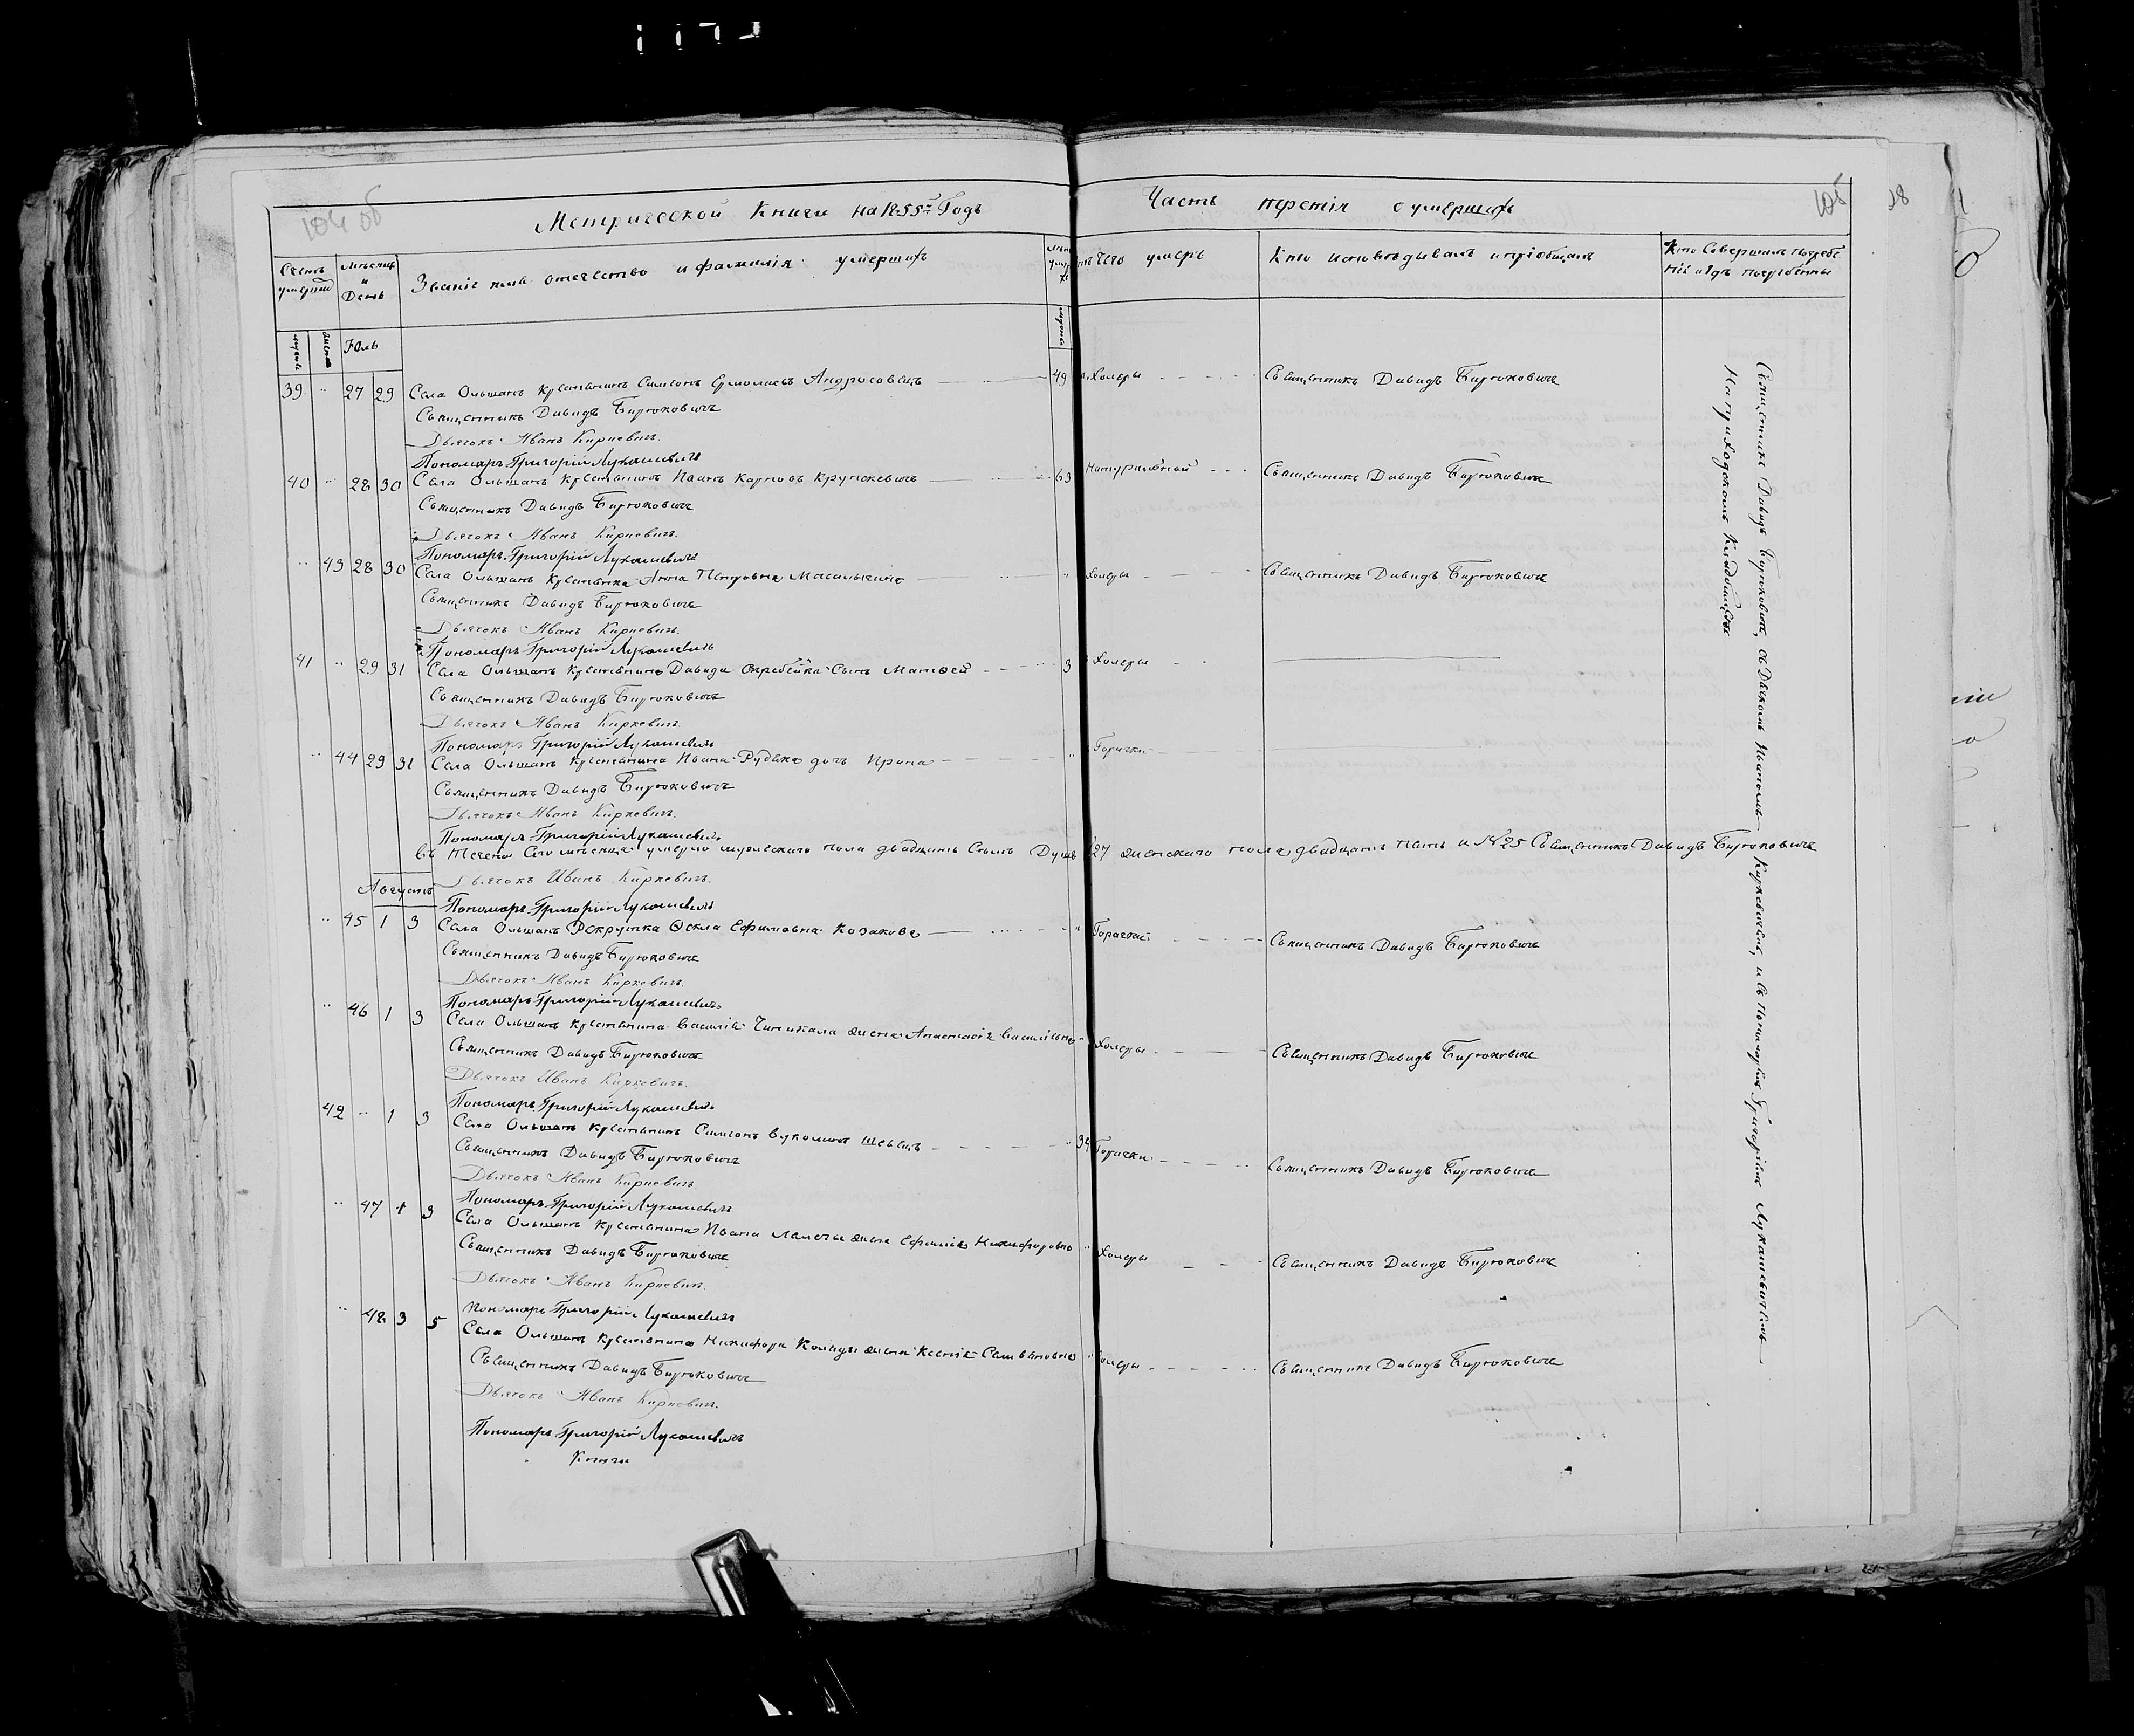 104 об
Метрической Книги на 1855й Годъ
Часть третія о умершихъ
105
28
Счетъ умершихъ
Мѣсяцъ и День
Званіе имя отечество и фамилія умершихъ
чего умеръ
Кто исповѣдывалъ и пріобщалъ
Кто Совершилъ погребеніе и гдѣ погребены
Юль
39 27 29 Села Ольшанъ крестьянинъ Симеонъ Ермолаевъ Андросовецъ 49 Холеры Священникъ Давидъ Бирюковичъ
Священникъ Давидъ Бирюковичъ
Дьячокъ Иванъ Киркевичъ.
Пономарь Григорій Лукашевичъ
40 28 30 Села Ольшанъ Крестьянинъ Иванъ Карповъ Крупкевичъ 63 Натуральной Священникъ Давидъ Бирюковичъ
Священникъ Давидъ Бирюковичъ
Дьячокъ Иванъ Киркевичъ.
Пономарь Григорій Лукашевичъ
43 28 30 Села Ольшанъ Крестьянка Анна Петровна Холеры Священникъ Давидъ Бирюковичъ
Священникъ Давидъ Бирюковичъ
Дьячокъ Иванъ Киркевичъ.
Пономарь Григорій Лукашевичъ
41 29 31 Села Ольшанъ Крестьянина Давида Скребейка Сынъ Матѳей 3 Холеры
Священникъ Давидъ Бирюковичъ
Дьячокъ Иванъ Киркевичъ.
Пономарь Григорій Лукашевичъ
44 29 31 Села Ольшанъ Крестьянина Ивана дочь Ирина Горячки
Священникъ Давидъ Бирюковичъ
Дьячокъ Иванъ Киркевичъ.
Пономарь Григорій Лукашевичъ
Въ теченіи Сего мѣсяца умерло мужескаго пола двадцать Семь Душъ 27 женскаго пола двадцать пять и № 25 Священникъ Давидъ Бирюковичъ
Дьячокъ Иванъ Киркевичъ.
Августъ
Пономарь Григорій Лукашевичъ
45 1 3 Села Ольшанъ Рекрутка Ѳекла Ефимовна Козакова Горячки Священникъ Давидъ Бирюковичъ
Священникъ Давидъ Бирюковичъ
Дьячокъ Иванъ Киркевичъ.
Пономарь Григорій Лукашевичъ
46 1 3 Села Ольшанъ Крестьянина Василія жена Анастасія Васильевна Холеры Священникъ Давидъ Бирюковичъ
Священникъ Давидъ Бирюковичъ
Дьячокъ Иванъ Киркевичъ.
Пономарь Григорій Лукашевичъ
42 1 3 Села Ольшанъ Крестьянинъ Симеонъ Шевецъ 34 Горячки Священникъ Давидъ Бирюковичъ
Священникъ Давидъ Бирюковичъ
Дьячокъ Иванъ Киркевичъ.
Пономарь Григорій Лукашевичъ
47 1 3 Села Ольшанъ Крестьянина Ивана жена Ефимія Никифоровна Холеры Священникъ Давидъ Бирюковичъ
Священникъ Давидъ Бирюковичъ
Дьячокъ Иванъ Киркевичъ.
Пономарь Григорій Лукашевичъ
48 3 5 Села Ольшанъ Крестьянина Никифора Коляды жена Ксенія Холеры Священникъ Давидъ Бирюковичъ
Священникъ Давидъ Бирюковичъ
Дьячокъ Иванъ Киркевичъ.
Пономарь Григорій Лукашевичъ
Книги
Священникъ Давидъ Бирюковичъ, съ Дьячкомъ Иваномъ Киркевичемъ, и съ Пономаремъ Григоріемъ Лукашевичемъ
На приходскомъ Кладбищѣ